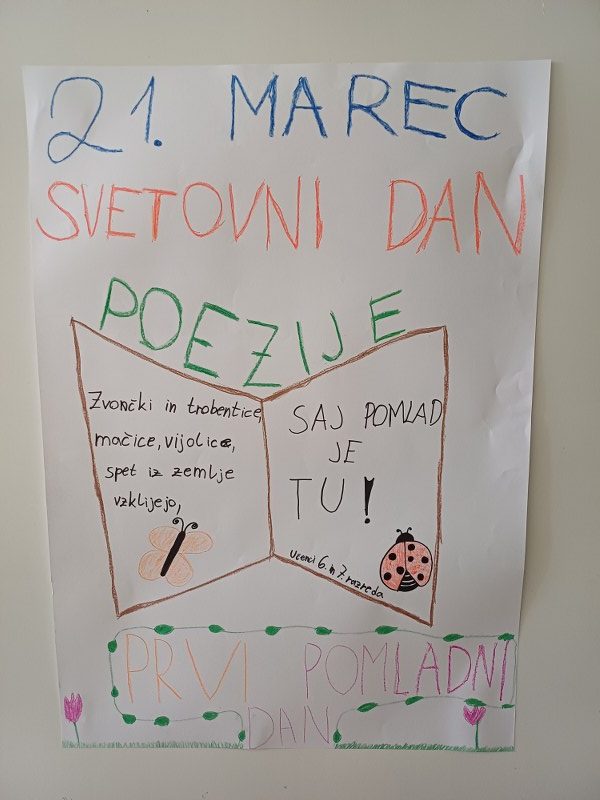 21. MAREC
SVETOVNI DAN
POEZIJE
Zvončki in trobentice,
mačice, vijolice,
spet iz zemlje
vzklijejo,
SAJ POMLAD
JE
TU!
Učenci 6. in 7. razreda
PRVI POMLADNI
DAN